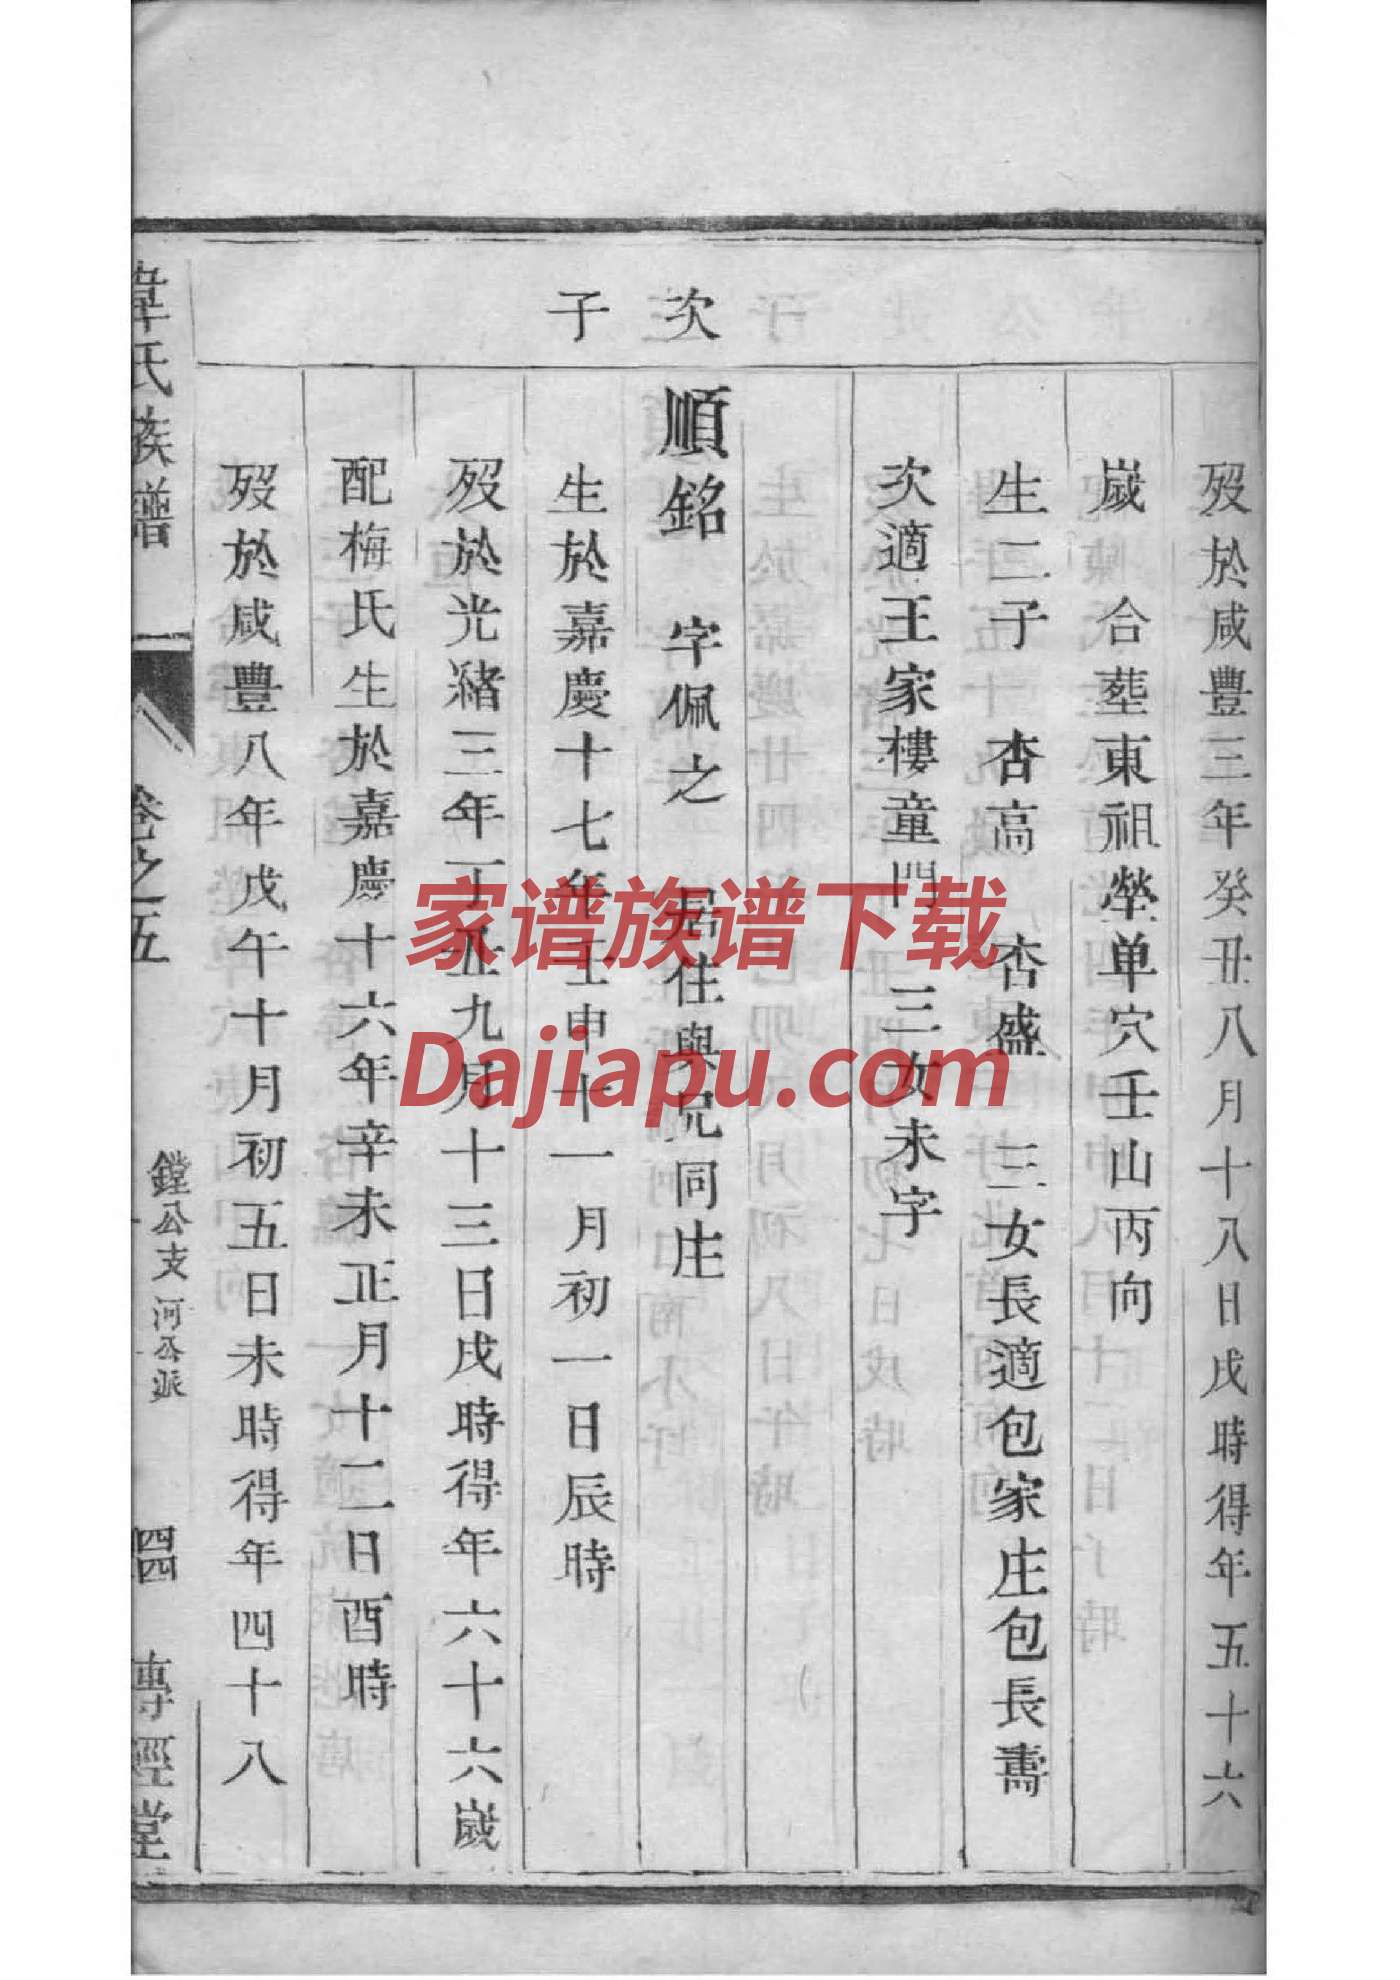 歿於咸豐三年癸丑八月十八日戌時得年五十六
歲　合塟東祖塋单穴壬山丙向
生二子　杏高　杏盛　三女長適包家庄包長壽
次適王家樓童門　三女未字
次子
順銘　字佩之　居住與兄同庄
生於嘉慶十七年壬申十一月初一日辰時
歿於光緒三年丁丑九月十三日戌時得年六十六歲
配梅氏生於嘉慶十六年辛未正月十二日酉時
歿於咸豐八年戊午十月初五日未時得年四十八
韋氏族譜
卷之五
鏜公支河公派
四四
專經堂
家谱族谱下载
Dajiapu.com